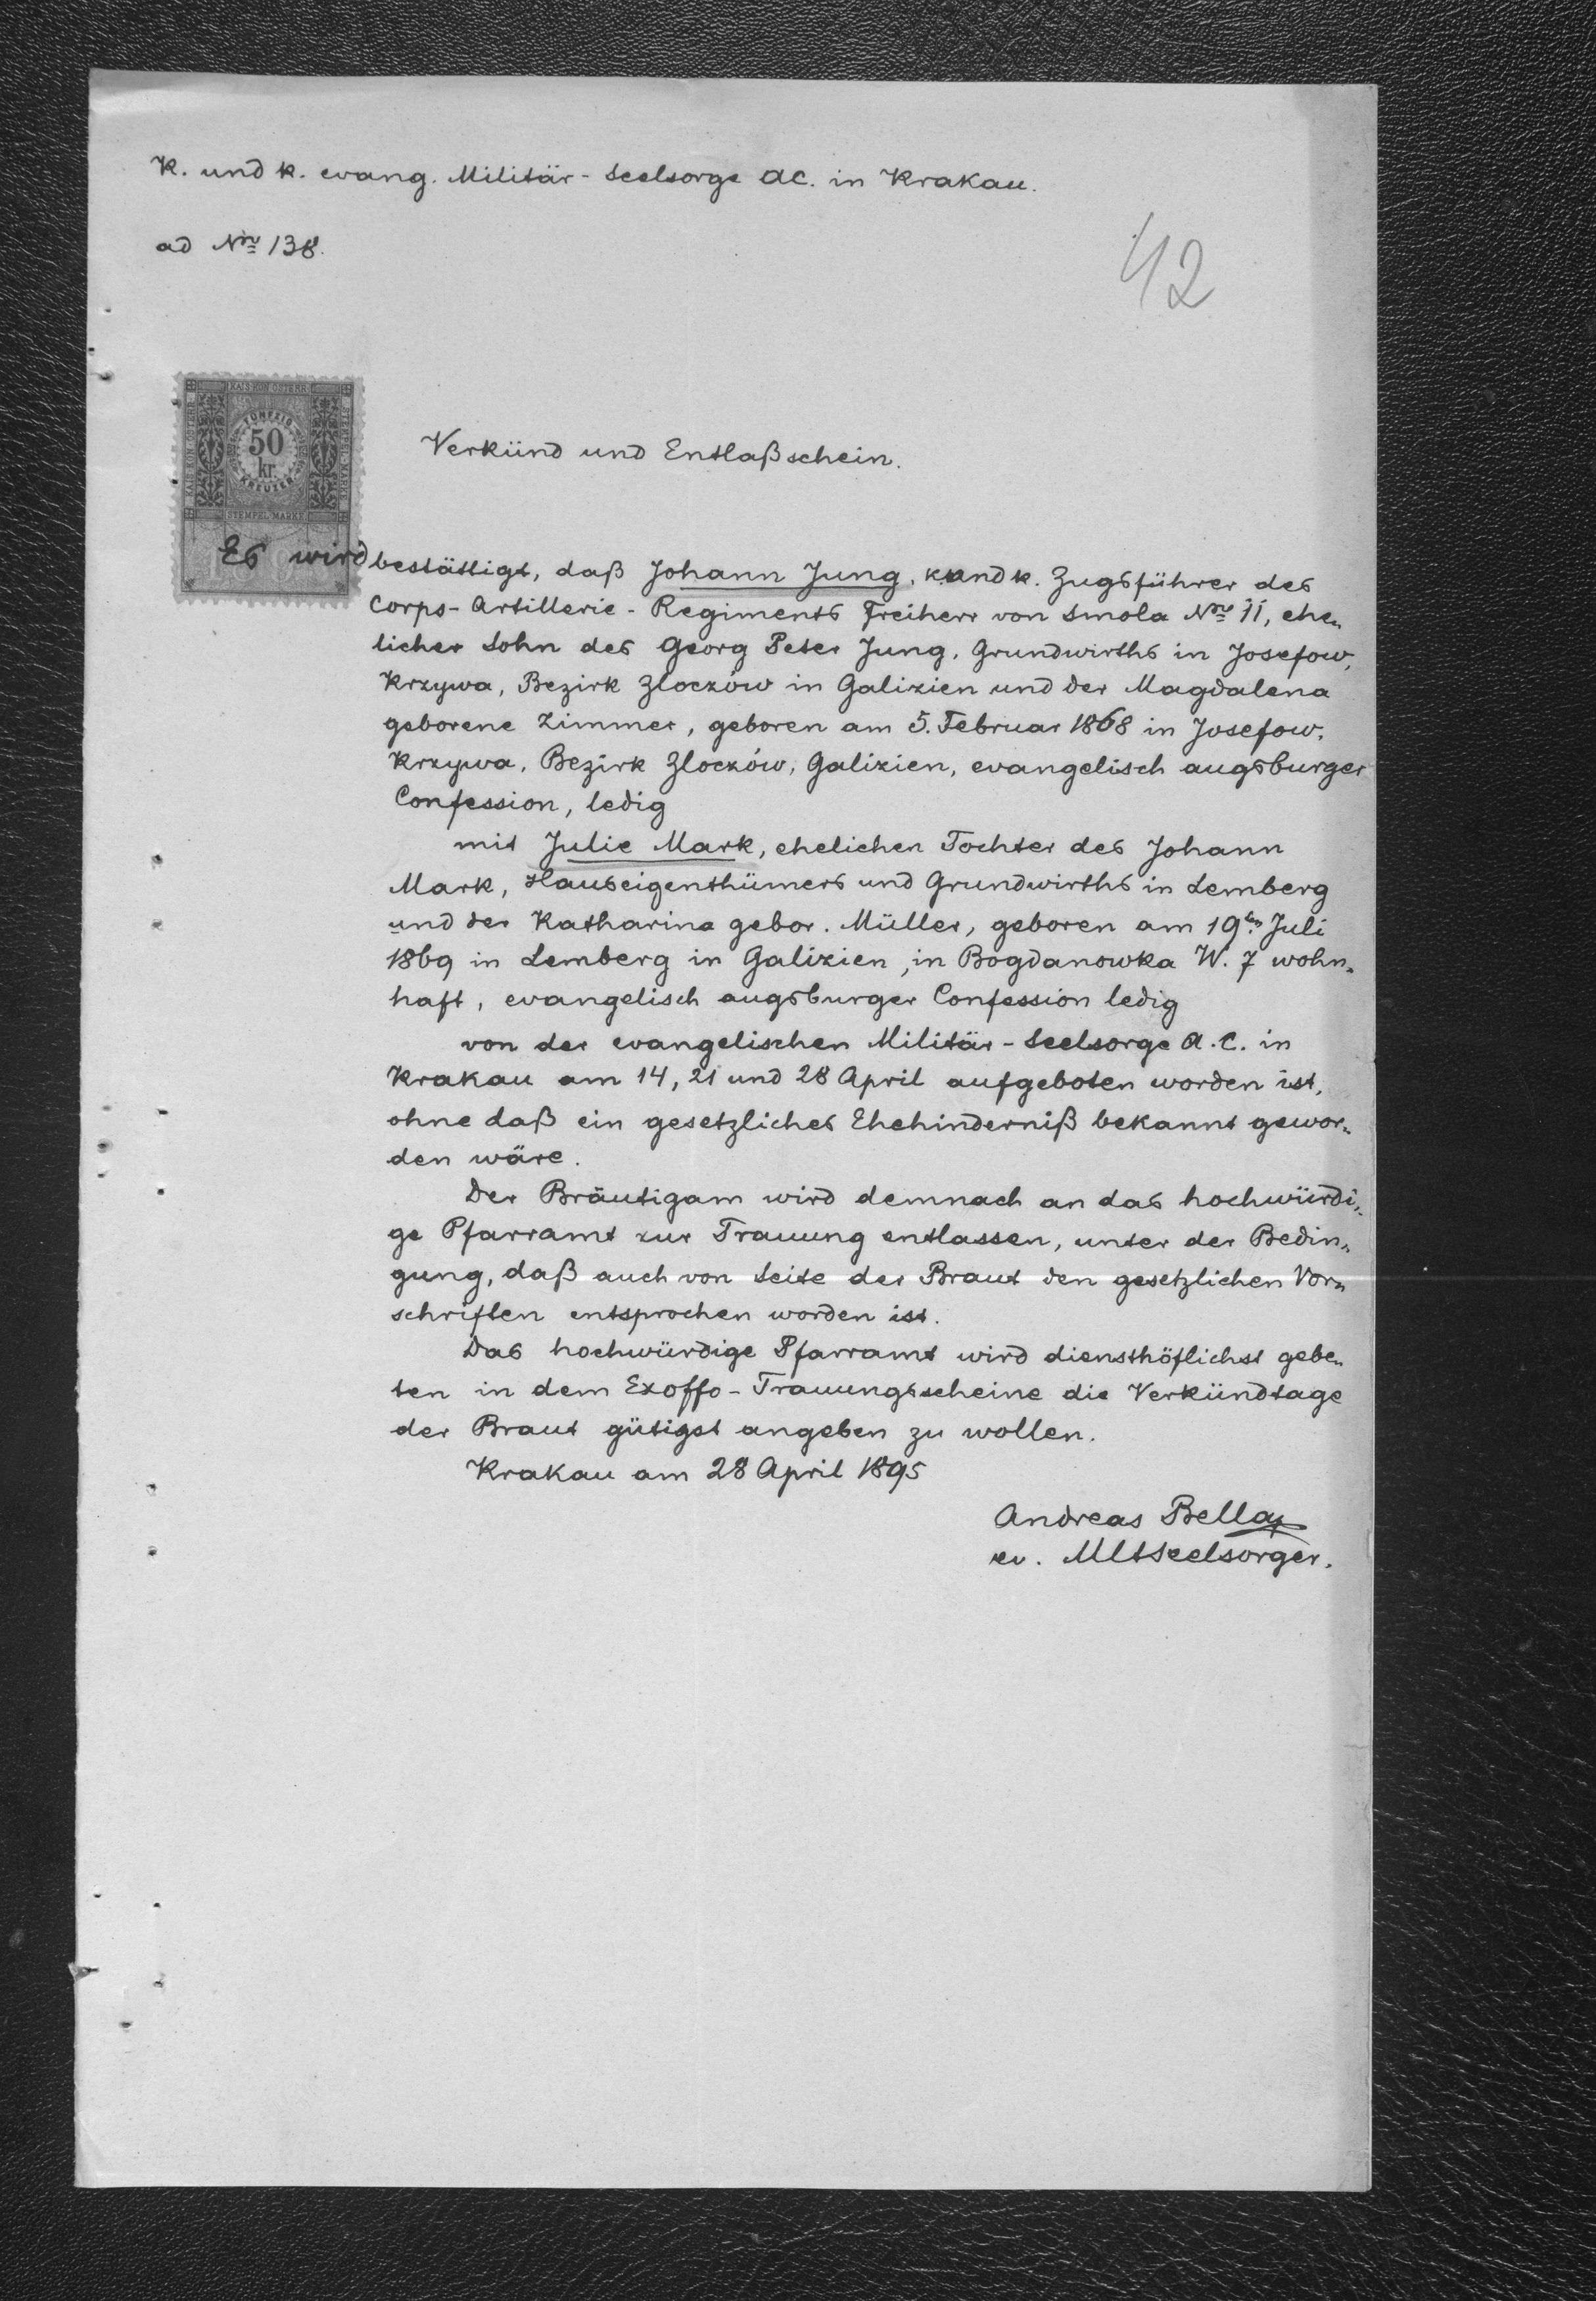 K. und k. evang. Militär-Seelsorge AC. in Krakau.
ad Nro 138.
42
KAIS. KÖN. ÖSTERR.
FÜNFZIG
50
kr.
KREUZER
STEMPEL MARKE
Verkünd und Entlaßschein.
Es wird bestättigt, daß Johann Jung, k. und k. Zugsführer des
Corps-Artillerie-Regiments Freiherr von Smola Nro 11, ehe„
licher Sohn des Georg Peter Jung, Grundwirths in Josefow,
Krzywa, Bezirk Zloczów in Galizien und der Magdalena
geborene Zimmer, geboren am 5. Februar 1868 in Josefow,
Krzywa, Bezirk Zloczów, Galizien, evangelisch augsburger
Confession, ledig
mit Julie Mark, ehelichen Tochter des Johann
Mark, Hauseigenthümers und Grundwirths in Lemberg
und der Katharina gebor. Müller, geboren am 19ten Juli
1869 in Lemberg in Galizien, in Bogdanowka W. 7 wohn„
haft, evangelisch augsburger Confession ledig
von der evangelischen Militär-Seelsorge A.C. in
Krakau am 14, 21 und 28 April aufgeboten worden ist,
ohne daß ein gesetzliches Ehehinderniß bekannt gewor„
den wäre.
Der Bräutigam wird demnach an das hochwürdi„
ge Pfarramt zur Trauung entlassen, unter der Bedin„
gung, daß auch von Seite der Braut den gesetzlichen Vor„
schriften entsprochen worden ist.
Das hochwürdige Pfarramt wird diensthöflichst gebe„
ten in dem Exoffo-Trauungsscheine die Verkündtage
der Braut gütigst angeben zu wollen.
Krakau am 28 April 1895
Andreas Bella
ev. Mltseelsorger.